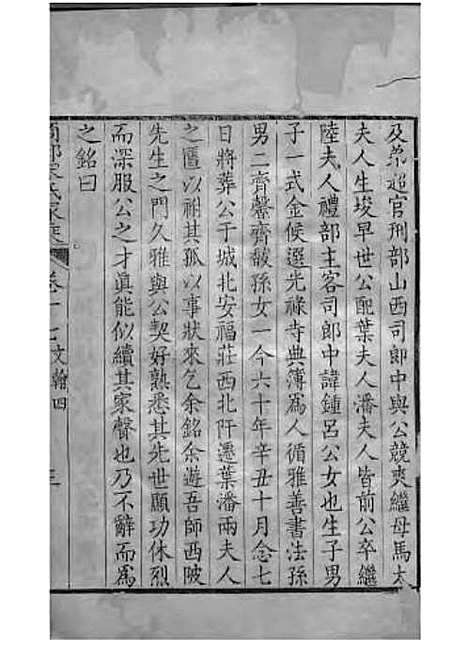 及 超官刑部山西司郎中與公競爽繼母馬太
夫人生埈早世公配葉夫人潘夫人皆前公卒繼
陸夫人禮部主客司郎中諱鍾呂公女也生子男
子一式金候選光祿寺典簿為人循雅善書法孫
男二齊馨齊馛孫女一今六十年辛丑十月念七
日將葬公于城北安福莊西北阡遷葉潘兩夫人
之匶以祔其孤以事狀來乞余銘余遊吾師西陂
先生之門久雅與公契好熟悉其先世顯功休烈
而深服公之才眞能似續其家聲也乃不辭而為
之銘曰
氏家 卷十七文翰四 三